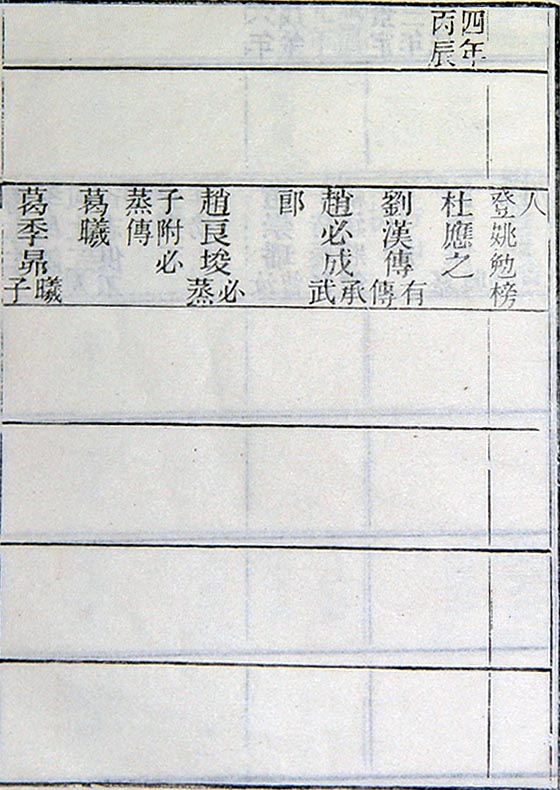 四年
丙辰
人
登姚勉榜
杜應之
劉漢傳有
傳
趙必成承
武
郎
趙良埈必
蒸
子附必
蒸傳
葛曦
葛季昴曦
子